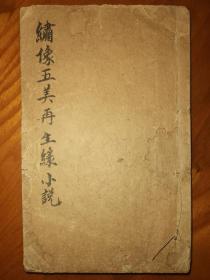 繡像五美再生緣小説